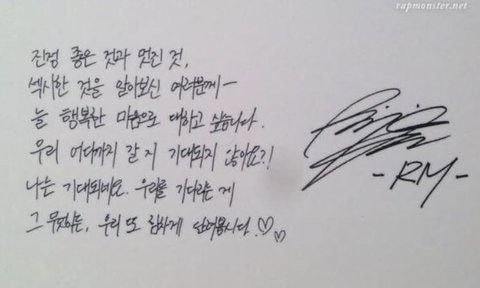 rapmonster.net
진정 좋은 것과 멋진 것,
섹시한 것을 알아보신 여러분께—
늘 행복한 마음으로 대하고 싶습니다.
우리 어디까지 갈 지 기대되지 않아요?!
나는 기대되네요. 우리를 기다리는 게
그 무엇이든, 우리 또 힘차게 넘어봅시다.♡♡
-RM-